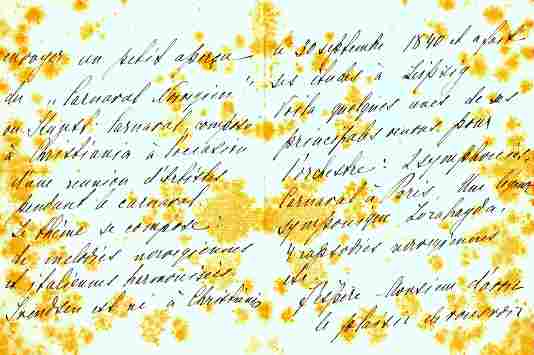 envoyer un petit aperçu
du "Carnaval Norvégien"
ou Carnaval, composé
à Christiania à l'occasion
d'une reunion d'artistes
pendant le carnaval.
Le thême se compose
de mélodies norvégiennes
et italiennes harmonisées
Svendsen est né à Christiania
le 30 septembre 1840 et a fait
ses études à Leipzig
Voilà quelques unes de ses
principales œuvres pour
l'orchestre: 2 symphonies,
Carnaval à Paris, Une légende
symphonique Zorahayda,
4 rapsodies norvégiennes
etc.
J'espère Monsieur d'avoir
le plaisir de vous voir